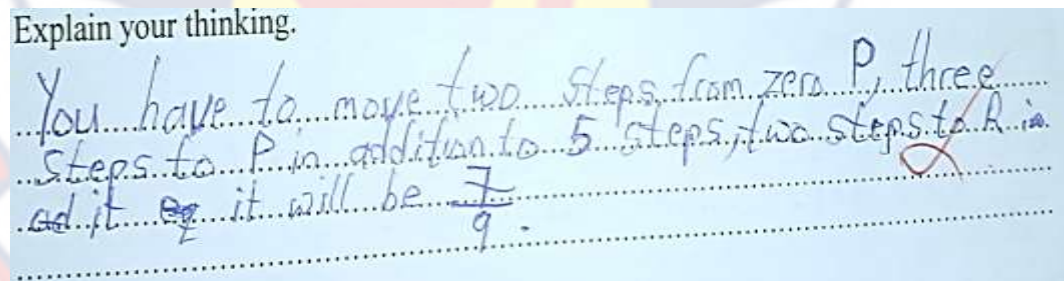 Explain your thinking.
You have to move two steps from zero P, three
steps to P in addition to 5 steps, two steps to R is
it it will be 7/9.